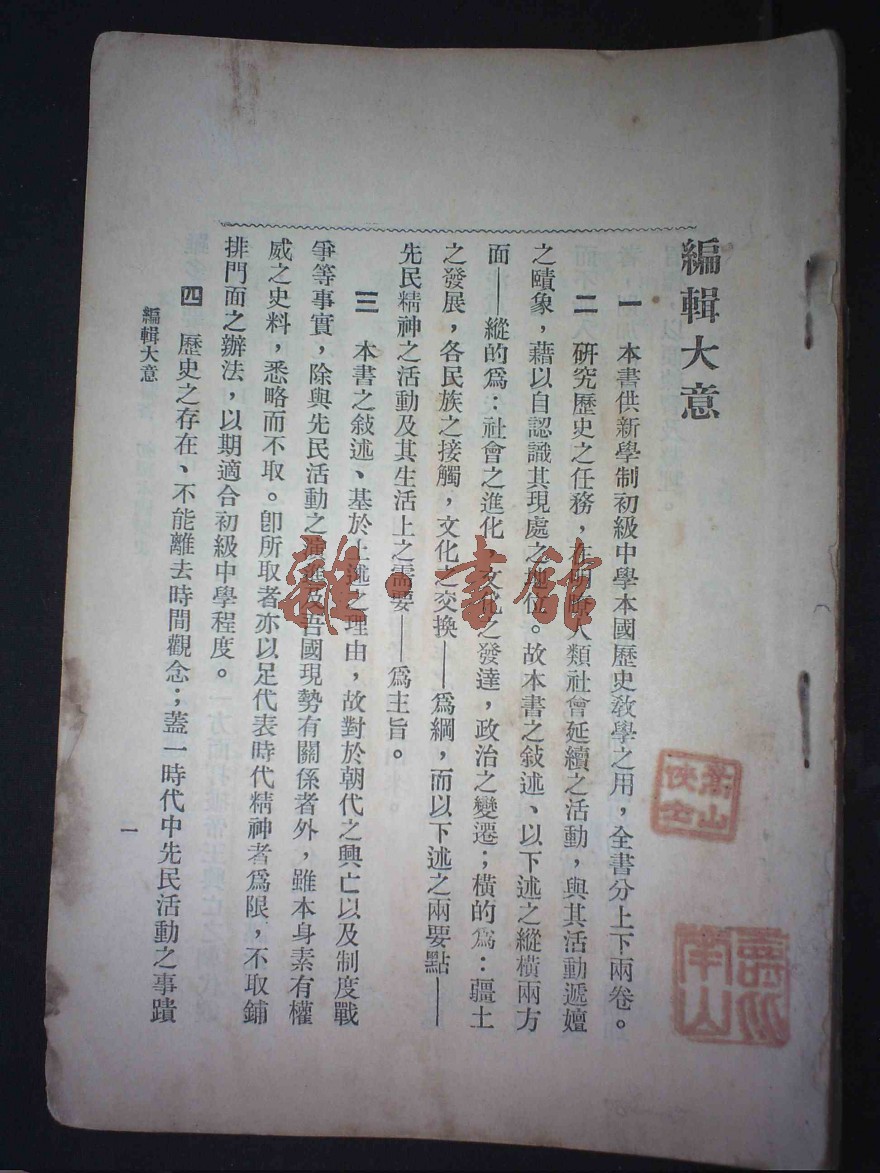 編輯大意
一 本書供新學制初級中學本國歷史教學之用，全書分上下兩卷。
二 研究歷史之任務，在明瞭人類社會延續之活動，與其活動遞嬗
之賾象，藉以自認識其現處之地位。故本書之敍述、以下述之縱橫兩方
面——縱的爲：社會之進化，文化之發達，政治之變遷；橫的爲：疆土
之發展，各民族之接觸，文化之交換——爲綱，而以下述之兩要點——
先民精神之活動及其生活上之需要——爲主旨。
三 本書之敍述、基於上述之理由，故對於朝代之興亡以及制度戰
爭等事實，除與先民活動之演進及吾國現勢有關係者外，雖本身素有權
威之史料，悉略而不取。卽所取者亦以足代表時代精神者爲限，不取鋪
排門面之辦法，以期適合初級中學程度。
四 歷史之存在、不能離去時間觀念；蓋一時代中先民活動之事蹟
編輯大意
一
雜·書館